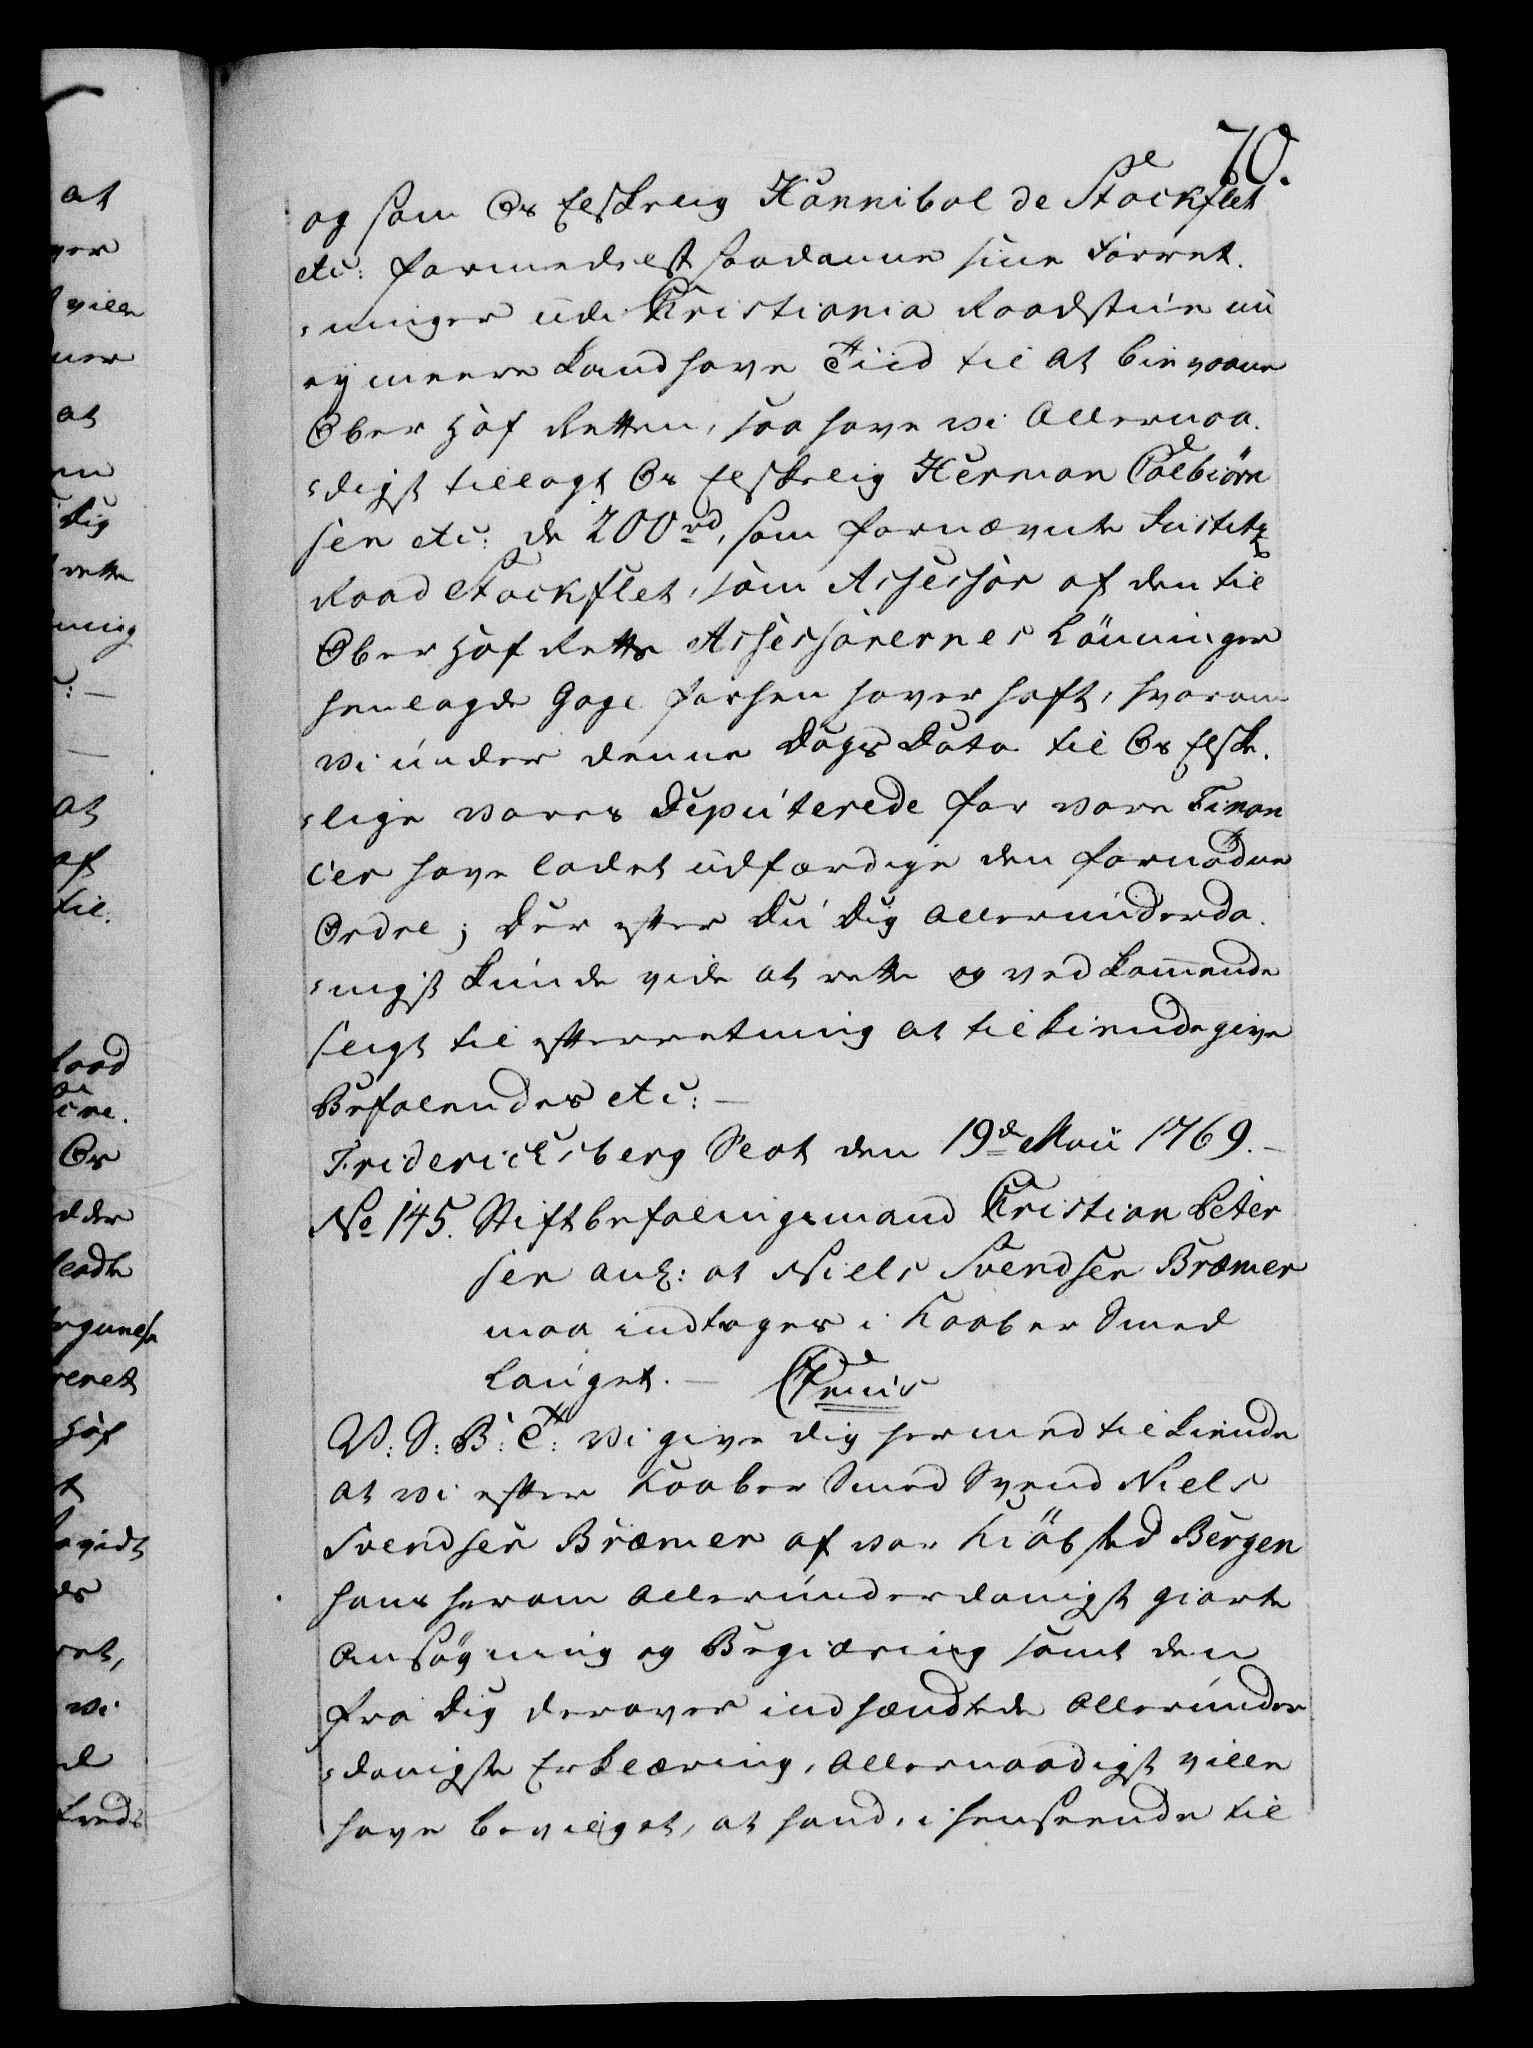 70.
og som Os Elskelig Hannibal de Stockflet
etc: formedelst saadanne sine Forret-
-ninger udi Christiania Raadstue nu
ey meere kand have Tiid til at bievaane
Ober Hof Retten, saa have vi Allernaa-
-digst tillagt Os Elskelig Herman Colbiörn
sen etc: de 200 rd, som fornævnte Justitz
Raad Stockflet, som Assessor af den til
Ober Hof Retts Assessorernes Lönninger
henlagde Gage forhen haver haft, hvorom
vi under denne Dags Dato til Os Elske-
-lige vores Deputerede for vore Finan
cer have ladet udfærdige den fornödne
Ordre; Der efter Du Dig allerunderda-
-nigst kunde vide at rette og vedkommende
sligt til efterretning at tilkiendegive
Befalendes etc: —
Fridericksberg Slot den 19de Maii 1769. —
No 145. Stiftbefalingsmand Christian Peter
sen anl: at Niels Svendsen Bræmer
maa indtages i Kaaber Smed
Lauget. —
V: S: B: T: Vi give dig hermed tilkiende
at vi efter Kaaber Smed Svend Niels
Svendsen Bræmer af vor Kiöbsted Bergen
hans herom allerunderdanigst giorte
Ansögning og Begiæring samt den
fra Dig derover indsændte allerunder
-danigste Erklæring, allernaadigst ville
have bevilget, at hand, i henseende til
at
ville
at
Dig
rette
ning
at
af
til.
Raad
Os
Hof
ret,
vi